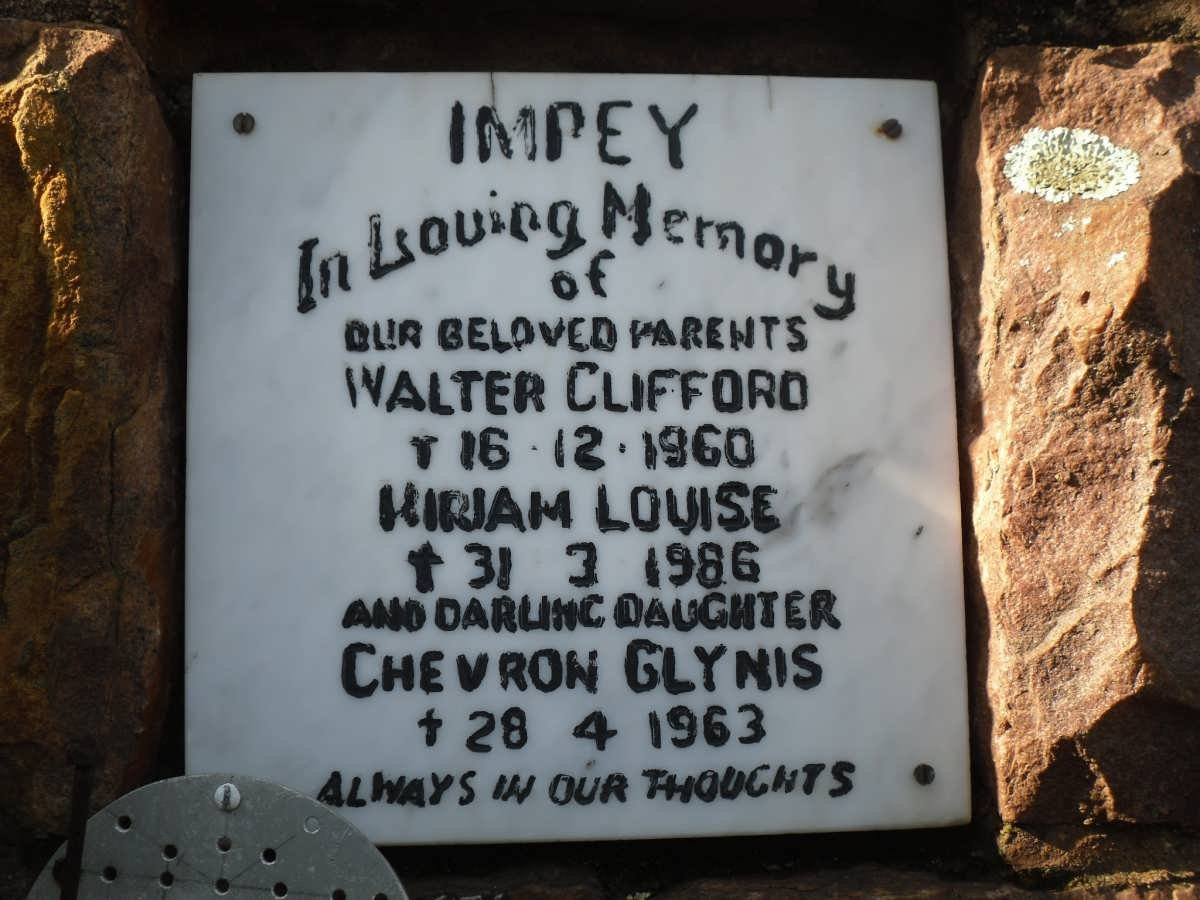 IMPEY
In Loving Memory
of
OUR BELOVED PARENTS
WALTER CLIFFORD
† 16 · 12 · 1960
MIRIAM LOUISE
† 31 3 1986
AND DARLING DAUGHTER
CHEVRON GLYNIS
† 28 4 1963
ALWAYS IN OUR THOUGHTS